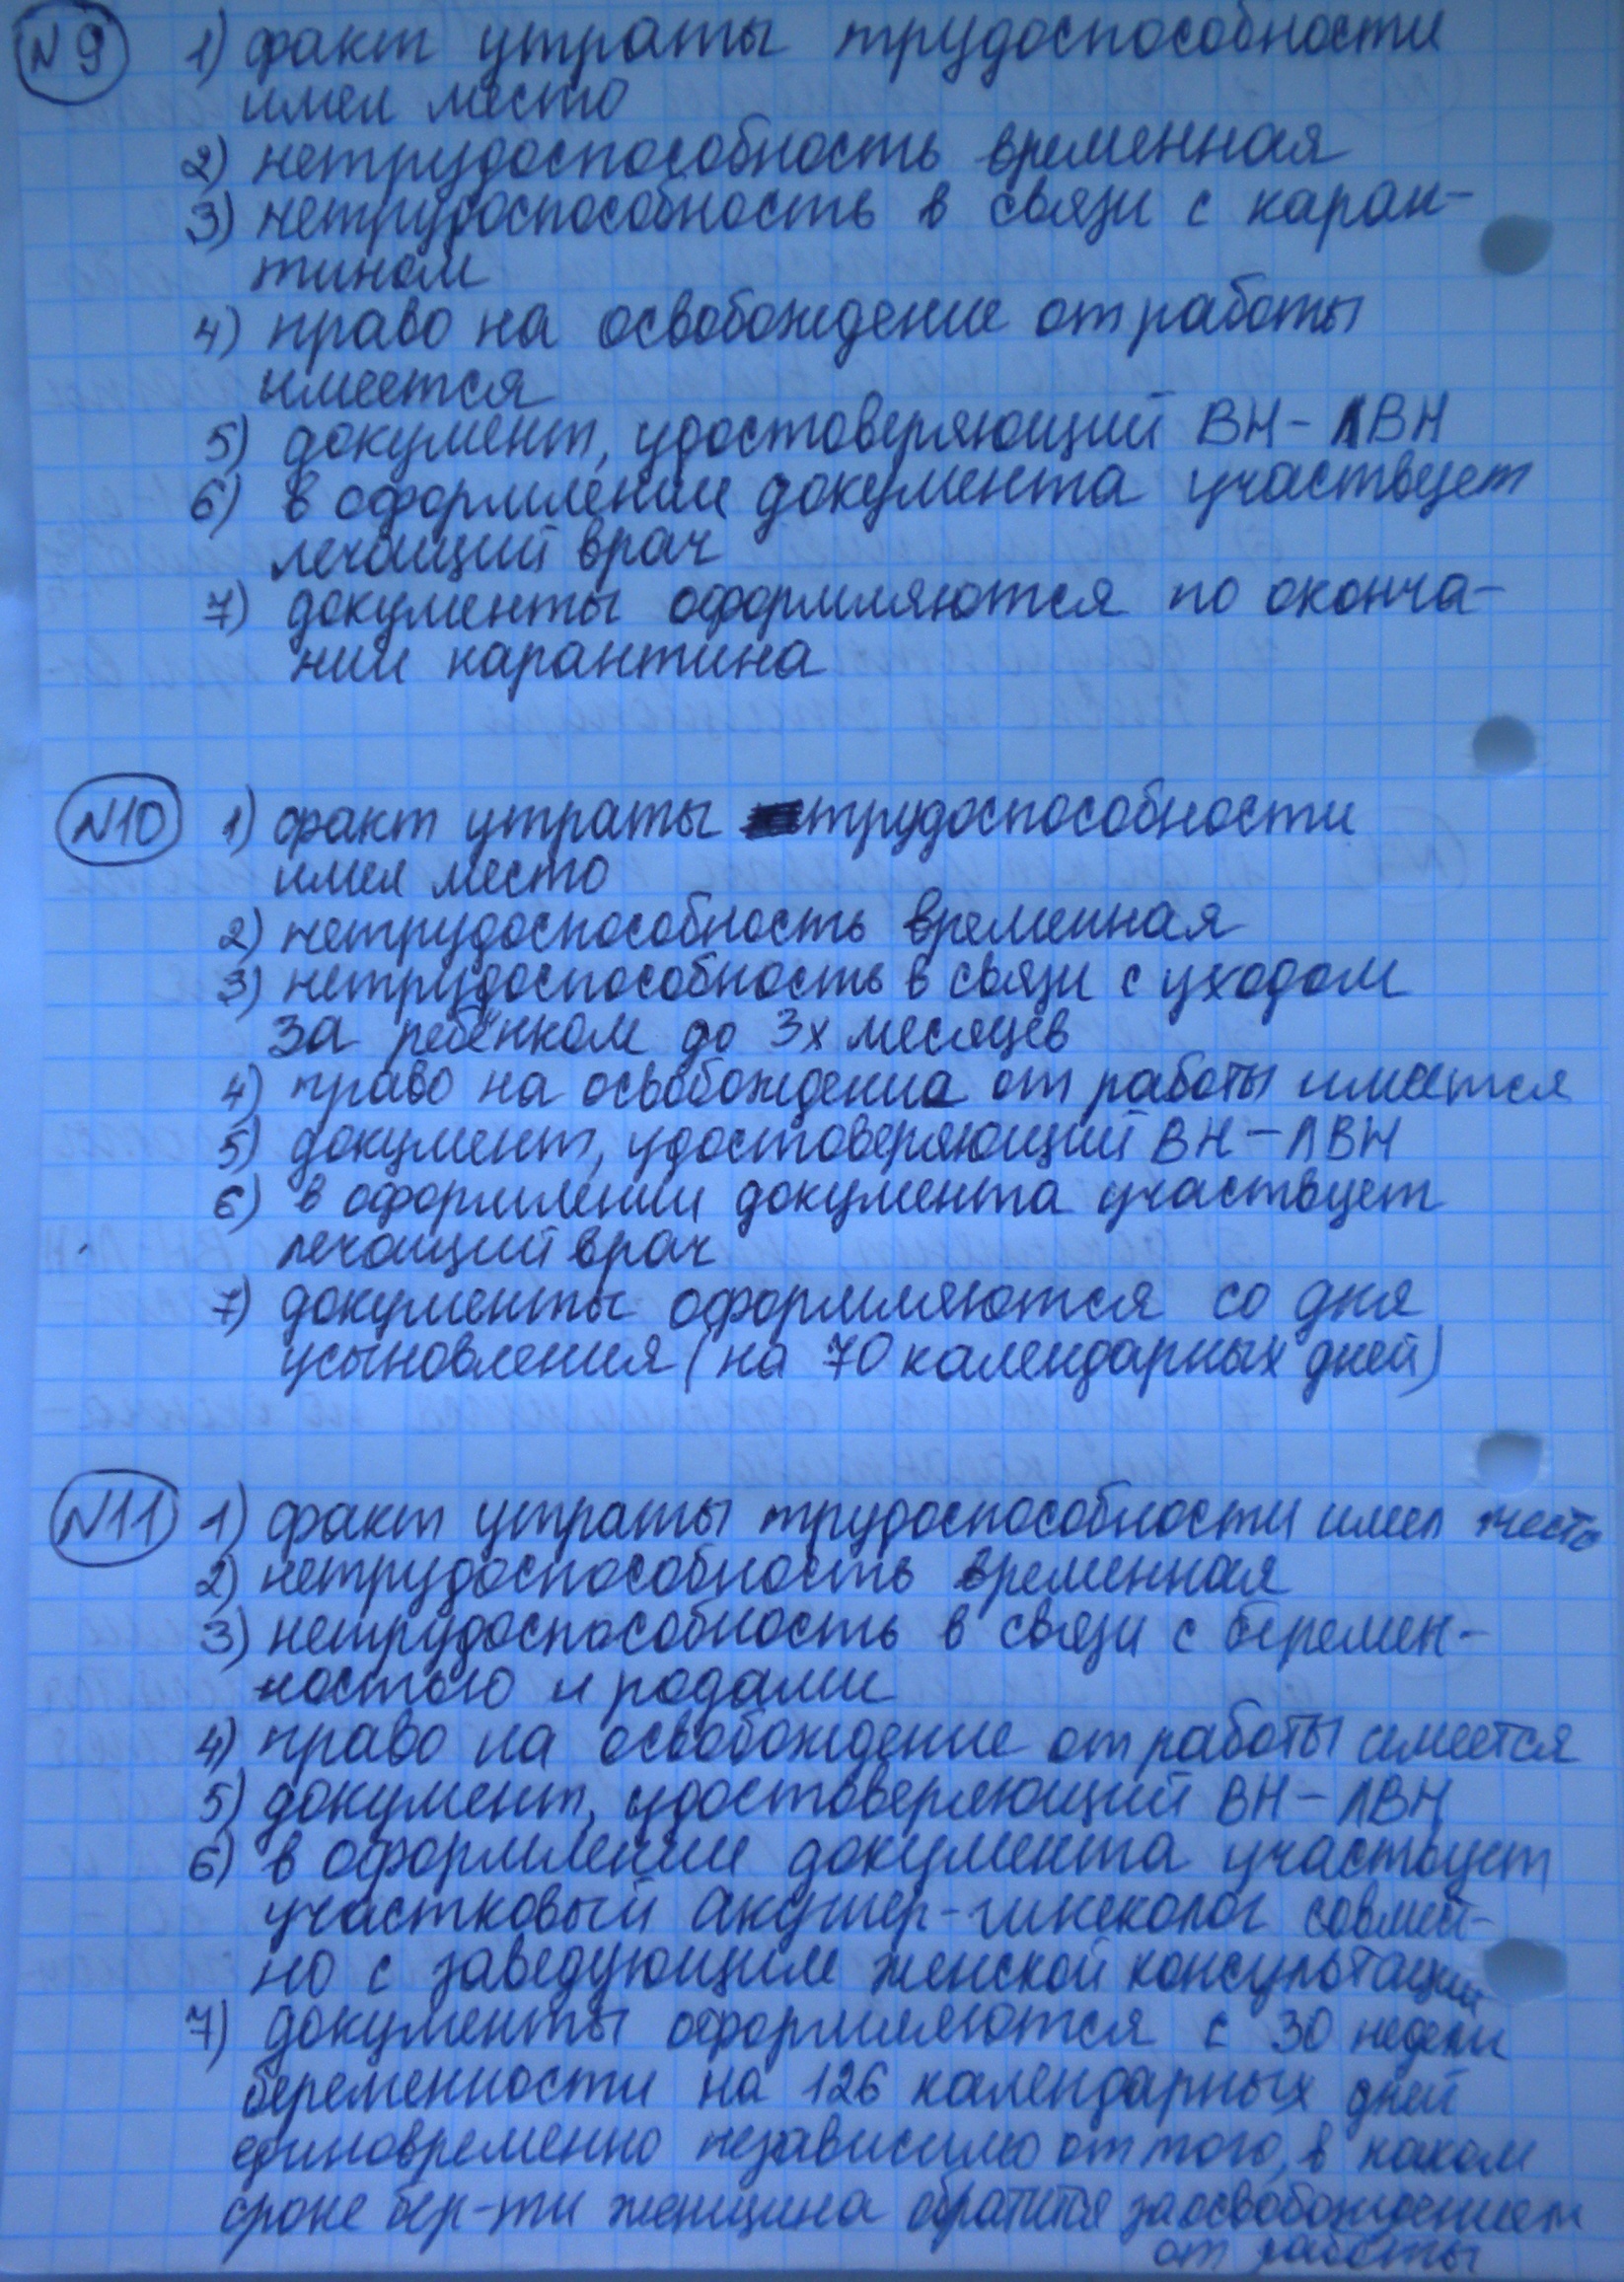 №9 1) факт утраты трудоспособности
имел место
2) нетрудоспособность временная
3) нетрудоспособность в связи с каран-
тином
4) право на освобождение от работы
имеется
5) документ, удостоверяющий ВН - ЛВН
6) в оформлении документа участвует
лечащий врач
7) документы оформляются по оконча-
нии карантина
№10 1) факт утраты трудоспособности
имел место
2) нетрудоспособность временная
3) нетрудоспособность в связи с уходом
за ребёнком до 3х месяцев
4) право на освобождение от работы имеется
5) документ, удостоверяющий ВН - ЛВН
6) в оформлении документа участвует
лечащий врач
7) документы оформляются со дня
усыновления (на 70 календарных дней)
№11 1) факт утраты трудоспособности имел место
2) нетрудоспособность временная
3) нетрудоспособность в связи с беремен-
ностью и родами
4) право на освобождение от работы имеется
5) документ, удостоверяющий ВН - ЛВН
6) в оформлении документа участвует
участковый акушер-гинеколог совмест-
но с заведующим женской консультации
7) документы оформляются с 30 недели
беременности на 126 календарных дней
единовременно независимо от того, в каком
сроке бер-ти женщина обратится за освобождением
от работы